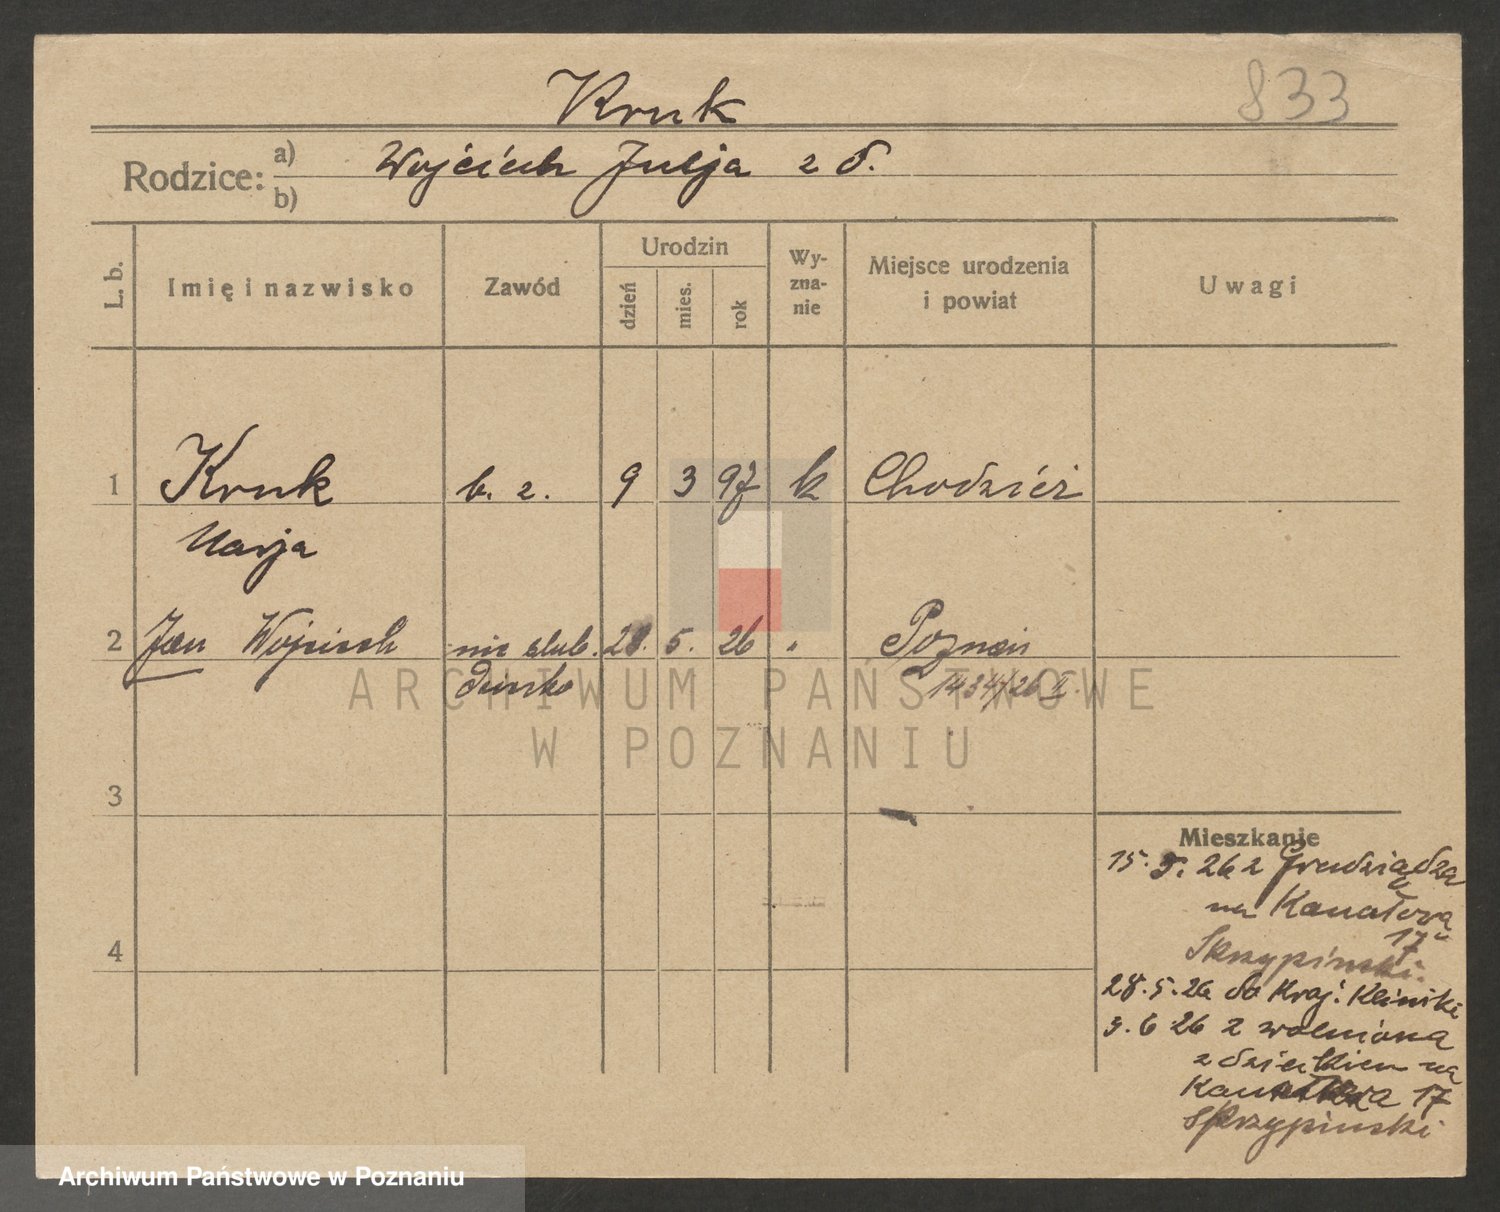 833
Kruk
Rodzice: a) Wojciech Julja z d.
b)
L. b. Imię i nazwisko Zawód Urodzin dzień mies. rok Wy-zna-nie Miejsce urodzenia i powiat Uwagi
1 Kruk b. z. 9 3 97 k Chodzież
Marja
2 Jan Wojciech nie ślub. 28. 5. 26 " Poznań
dziecko 1434/26 II.
ARCHIWUM PAŃSTWOWE
W POZNANIU
3
4
Mieszkanie
15. 5. 26 z Grudziądza
na Kanałową
17
Skrzypiński.
28. 5. 26 do Kraj. Kliniki
3. 6 26 zwolniona
z dzieckiem na
Kanałowa 17
Skrzypiński
Archiwum Państwowe w Poznaniu